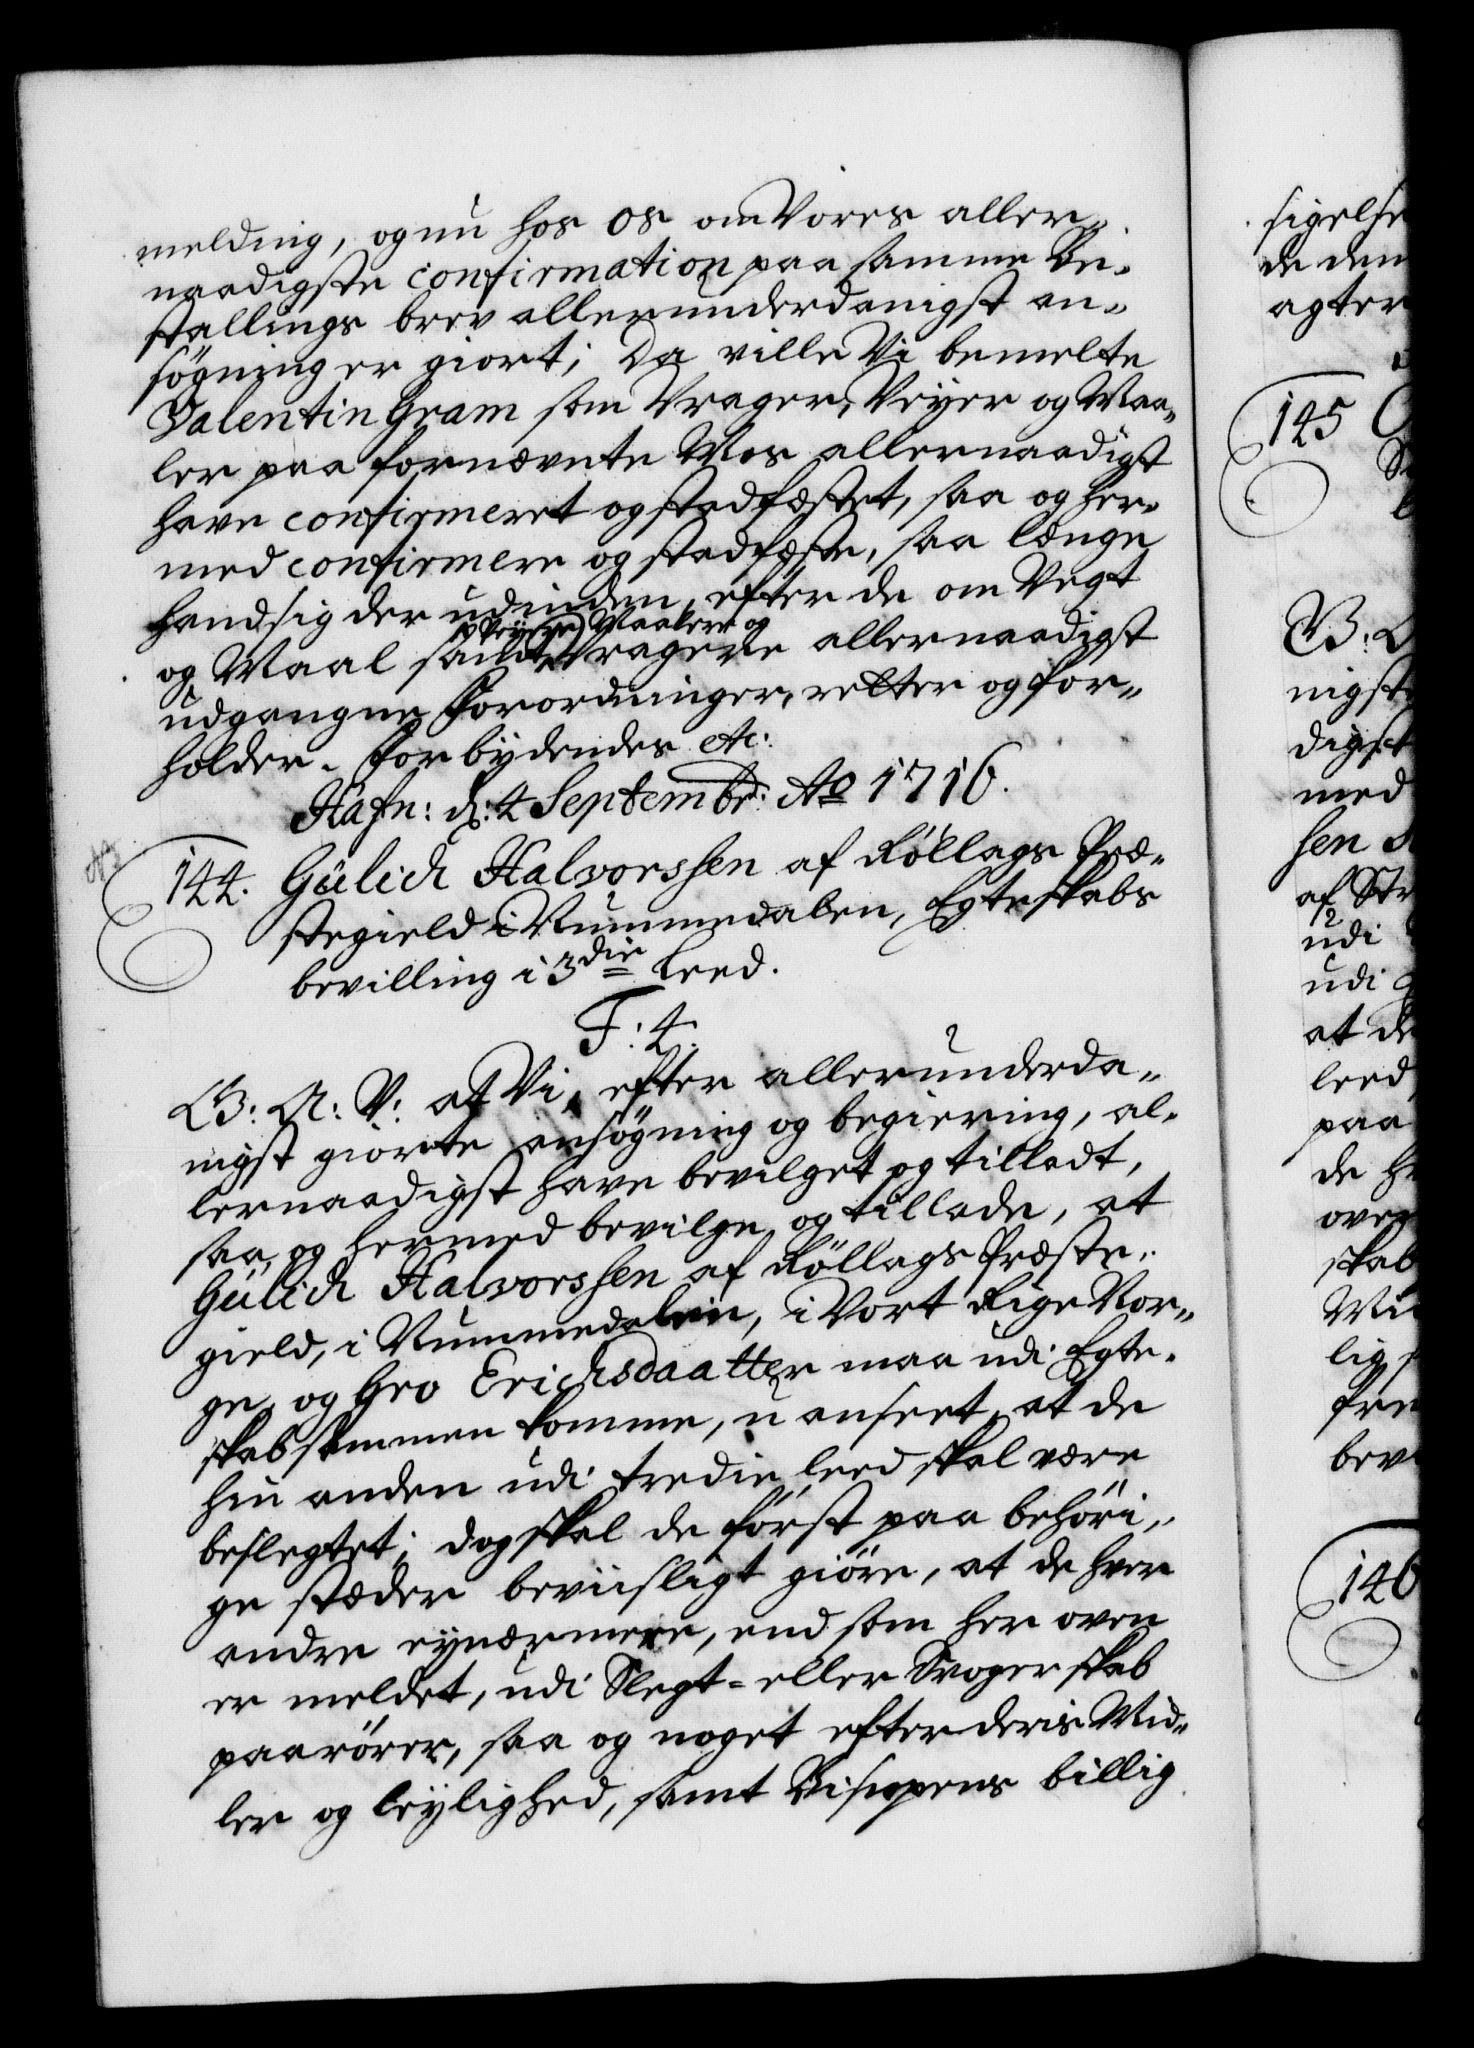 melding, og nu hos os om Vores aller-
naadigste confirmation paa samme Be-
stallings brev allerunderdanigst an-
søgning er giort; Da ville Vi bemelte
Valentin Gram som Vrager, Veyer og Maa-
ler paa fornævnte Mos allernaadigst
have confirmeret og stadfæstet, saa og her-
med confirmere og stadfæste, saa længe
hand sig der udinden, efter de om Vegt
Veyere, Maalere og
og Maal samt Vragere allernaadigst
udgangne Forordninger, retter og for-
holder. Forbydendes etc:
Hafn: d: 4 Septembr: Ao 1716.
144. Gulich Halvorssen af Røllags Præ-
stegield i Nummedalen, Egteskabs
bevilling i 3die Leed.
F: 4.
G: A: V: at Vi, efter allerunderda-
nigst giorte ansøgning og begiering, al-
lernaadigst have bevilget og tilladt,
saa og hermed bevilge og tillade, at
Gulich Halvorssen af Røllags Præste-
gield, i Nummedalen, i Vort Rige Nor-
ge, og Gro Erichsdaatter maa udi Egte-
skab sammen komme, uanseet, at de
hin anden udi tredie leed skal være
beslegtet; dog skal de først paa behöri-
ge stæder beviisligt giöre, at de hver
andre ey nærmere, end som her oven
er meldet, udi Slegt- eller Svogerskab
paarörer, saa og noget efter deris Mid-
ler og leylighed, samt Bispens billig
sigelse
de den
agter
145
G:
nigst
digst
med
sen
af
udi
udi
at de
leed
paa
de
oven
skab
lig
bev
146